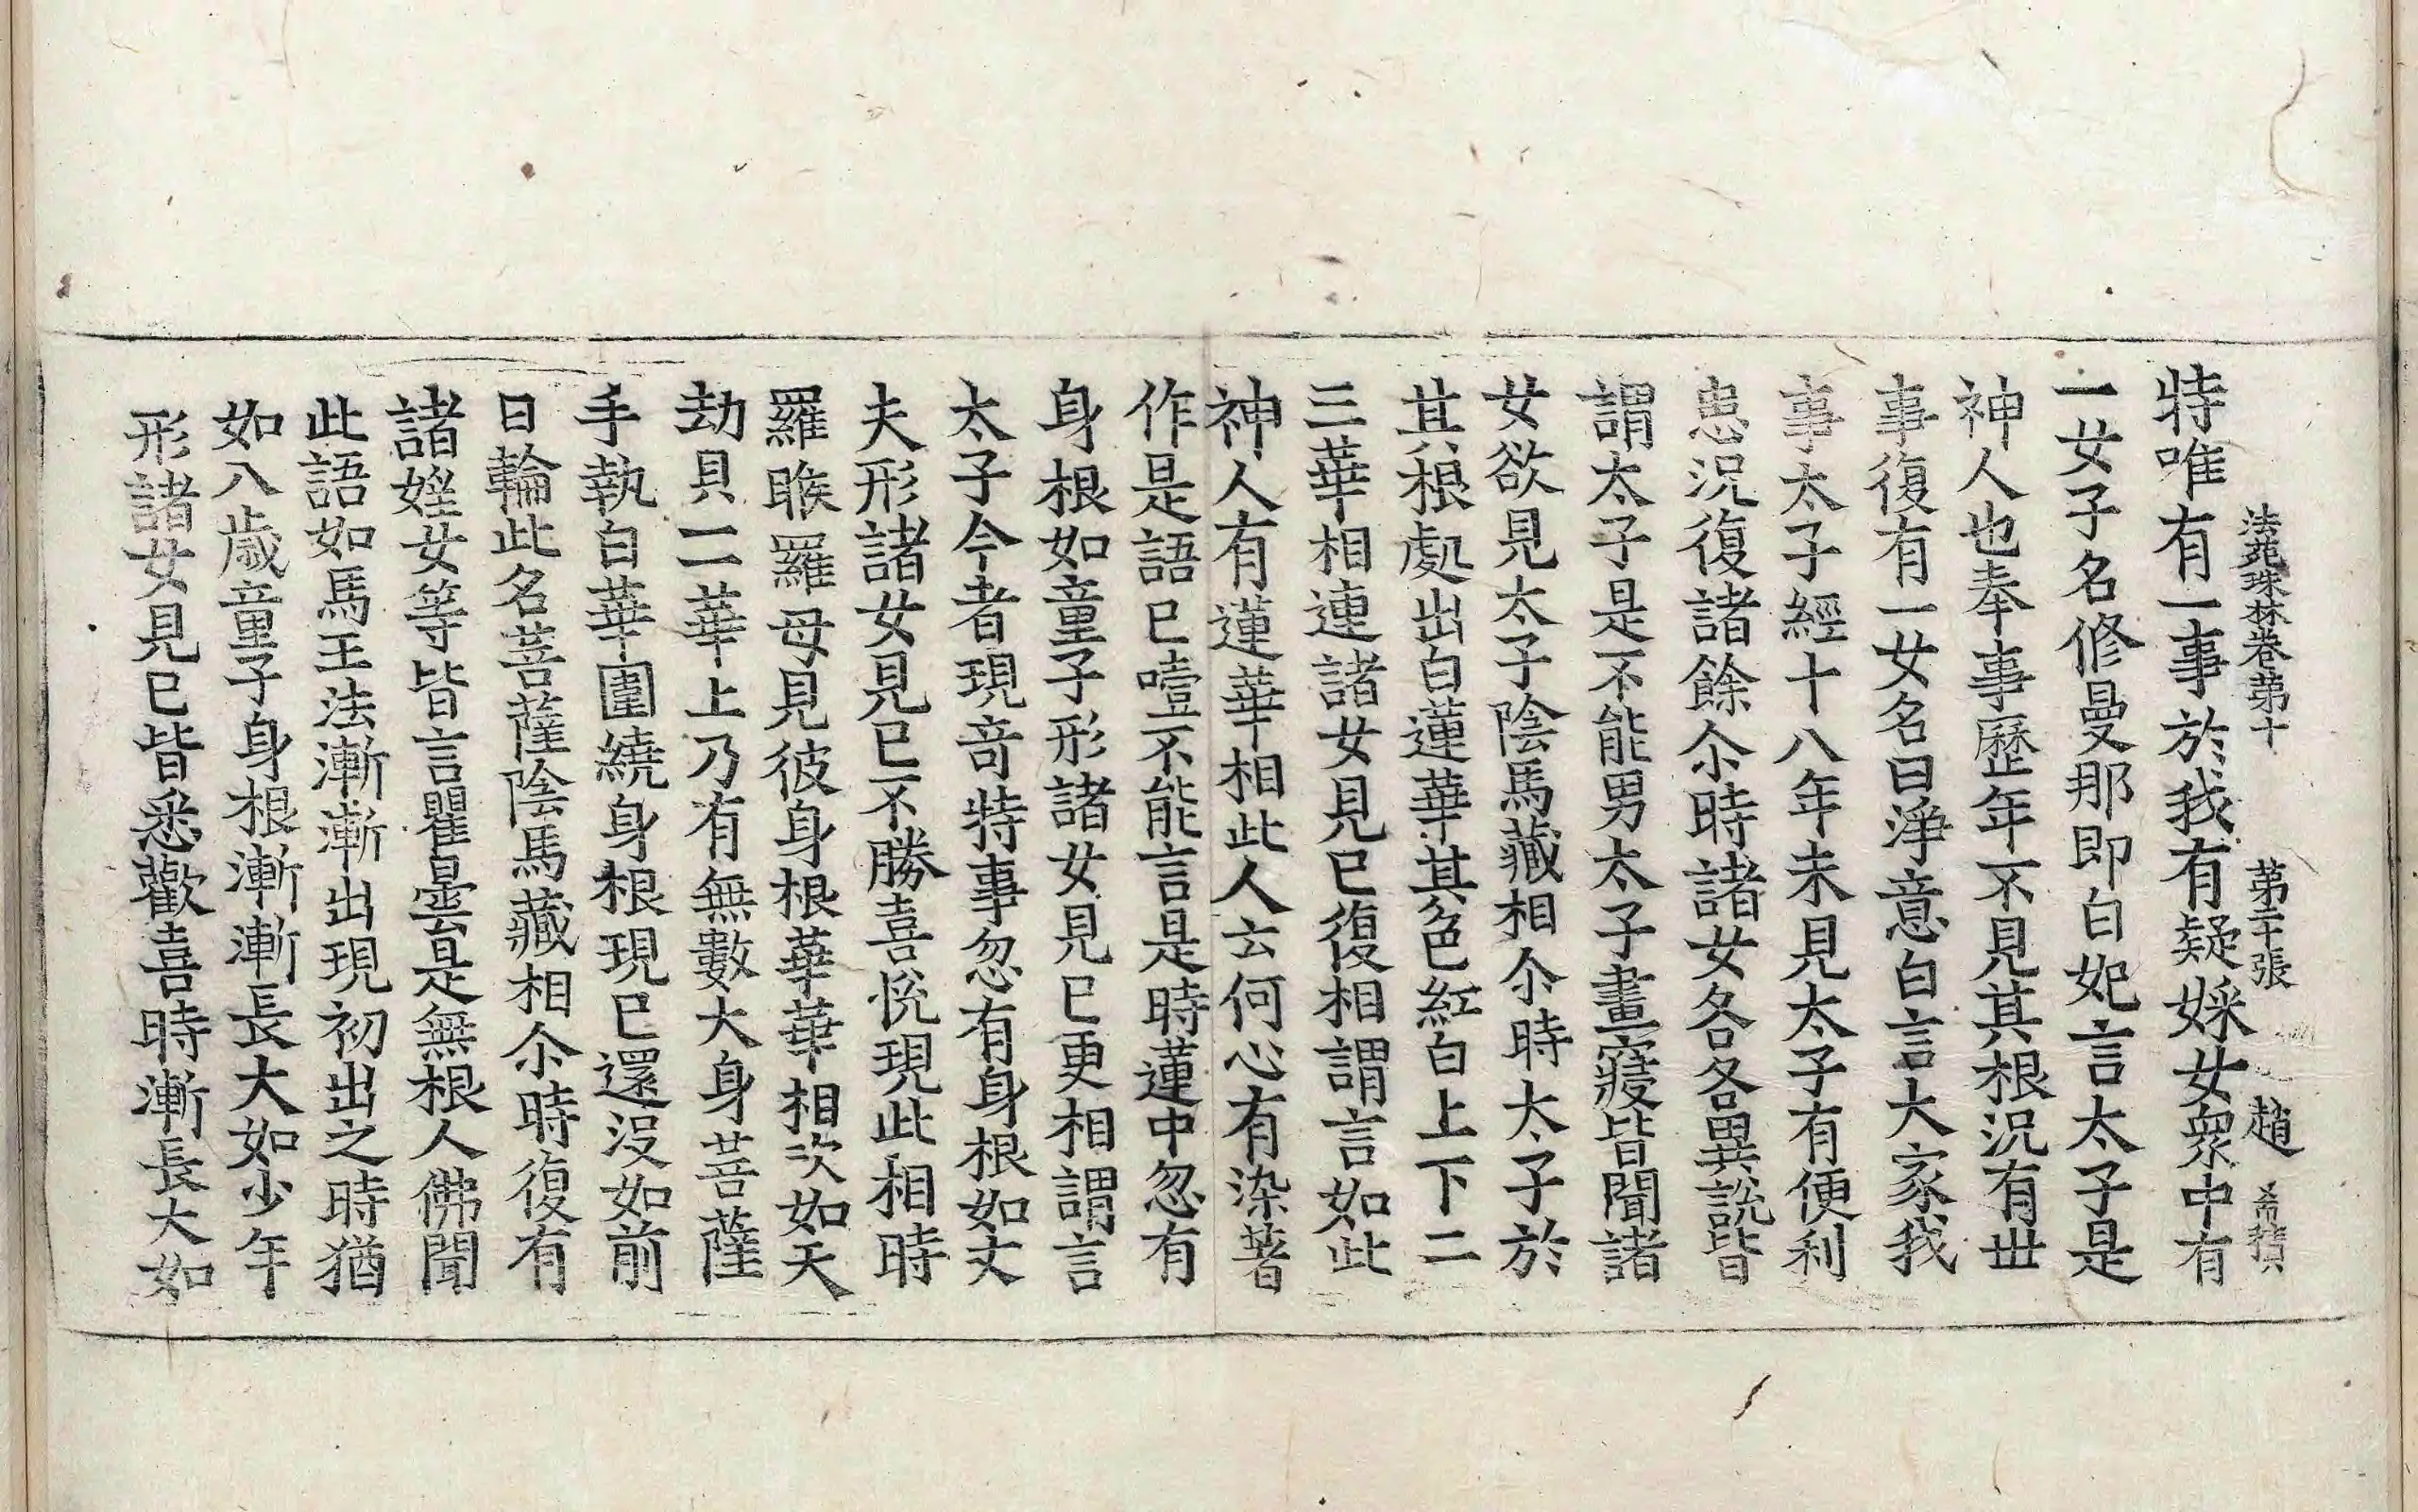 法苑珠林卷第十 第二十張 趙 希積
特唯有一事於我有疑婇女衆中有
一女子名修曼那即白妃言太子是
神人也奉事歷年不見其根況有丗
事復有一女名曰淨意白言大家我
事太子經十八年未見太子有便利
患況復諸餘尒時諸女各各異說皆
謂太子是不能男太子晝寢皆聞諸
女欲見太子陰馬藏相尒時太子於
其根處出白蓮華其色紅白上下二
三華相連諸女見已復相謂言如此
神人有蓮華相此人云何心有染著
作是語已噎不能言是時蓮中忽有
身根如童子形諸女見已更相謂言
太子今者現竒特事忽有身根如丈
夫形諸女見已不勝喜悅現此相時
羅睺羅母見彼身根華華相次如天
劫貝一一華上乃有無數大身菩薩
手執白華圍繞身根現已還沒如前
日輪此名菩薩陰馬藏相尒時復有
諸婬女等皆言瞿曇是無根人佛聞
此語如馬王法漸漸出現初出之時猶
如八歲童子身根漸漸長大如少年
形諸女見已皆悉歡喜時漸長大如